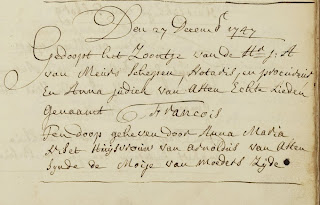 Den 27 Decemb 1747
Gedoopt het Zoontje van de Hr J: H
van Meurs Schepen, Notaris en procureur
En Anna judich van Atten Echte Lieden
Genaamt Francois
Ten doop geheven door Anna Maria
Huijsvrouw van arnoldus van Atten
Zynde de Moije van Moeders Zyde